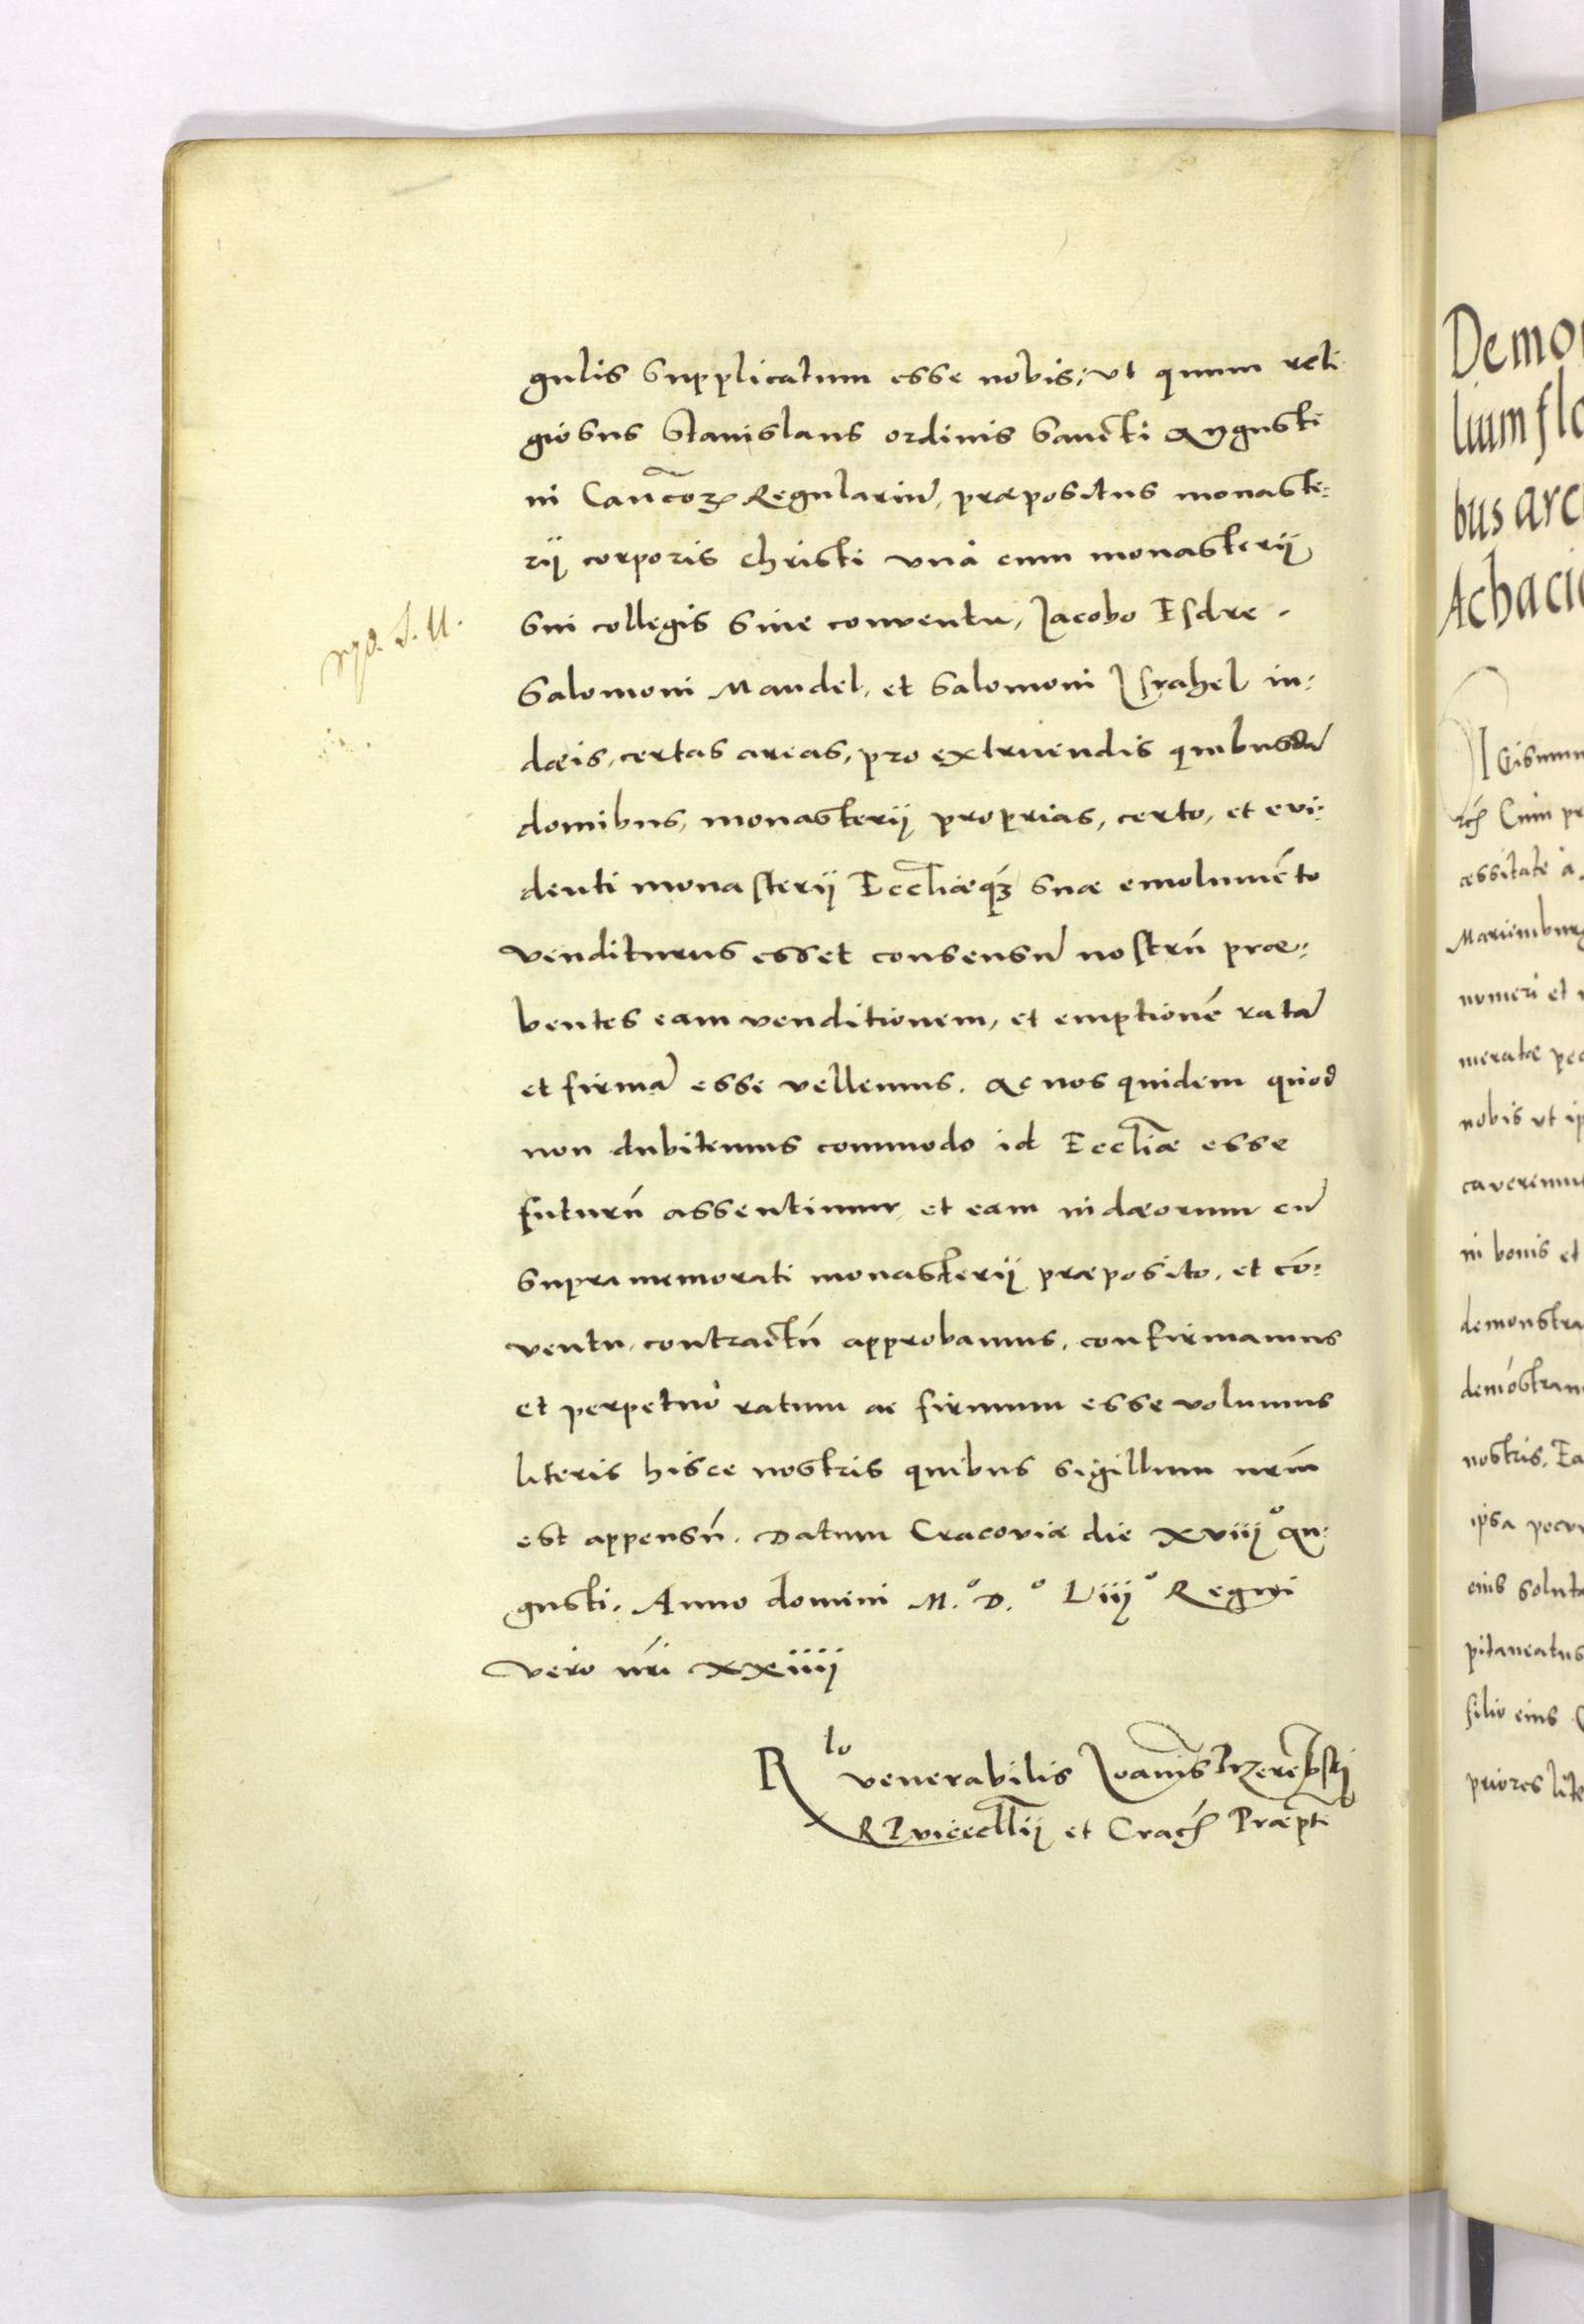 gulis supplicatum esse nobis: ut quum reli
giosus Stanislaus ordinis Sancti Augusti
ni Can̄coꝝ Regulariũ, præpositus monaste:
rij corporis christi unà cum monasterij
sui collegis sive conventu, Jacobo Esdre.
Salomoni Mandel, et Salomoni Jsrahel iu:
dæis, certas areas, pro extruendis quibusdã
domibus, monasterij proprias, certo, et evi:
denti monasterij Eccl̃iæqꝫ suæ emolumẽto
venditurus esset consensũ nostrũ præ:
bentes eam venditionem, et emptionẽ ratã
et firmã esse vellemus. Ac nos quidem quod
non dubitemus commodo id Eccl̃iæ esse
futurũ assentimur, et eam iudæorum cũ
supramemorati monasterij præposito, et cõ:
ventu, contractũ approbamus, confirmamus
et perpetuò ratum ac firmum esse volumus
literis hisce nostris quibus sigillum nr̃m
est appensũ. Datum Cracoviæ die xviijº Au:
gusti. Anno domini M.º D.º Liijº Regni
vero nr̃i xxiiij
Rlo venerabilis Joannis Przerẽbskj
R P vicecll̃ij et Crac̃ Præpti
Demo
lium flo
bus arc
Achaci
cessitate à
Mariinburg
numeri et
meratæ pec
nobis ut ip
caveremu
in bonis et
demonstra
demõstran
nostris. Ea
ipsa pecu
eius soluta
pitaneatus
filio eius
priores lite